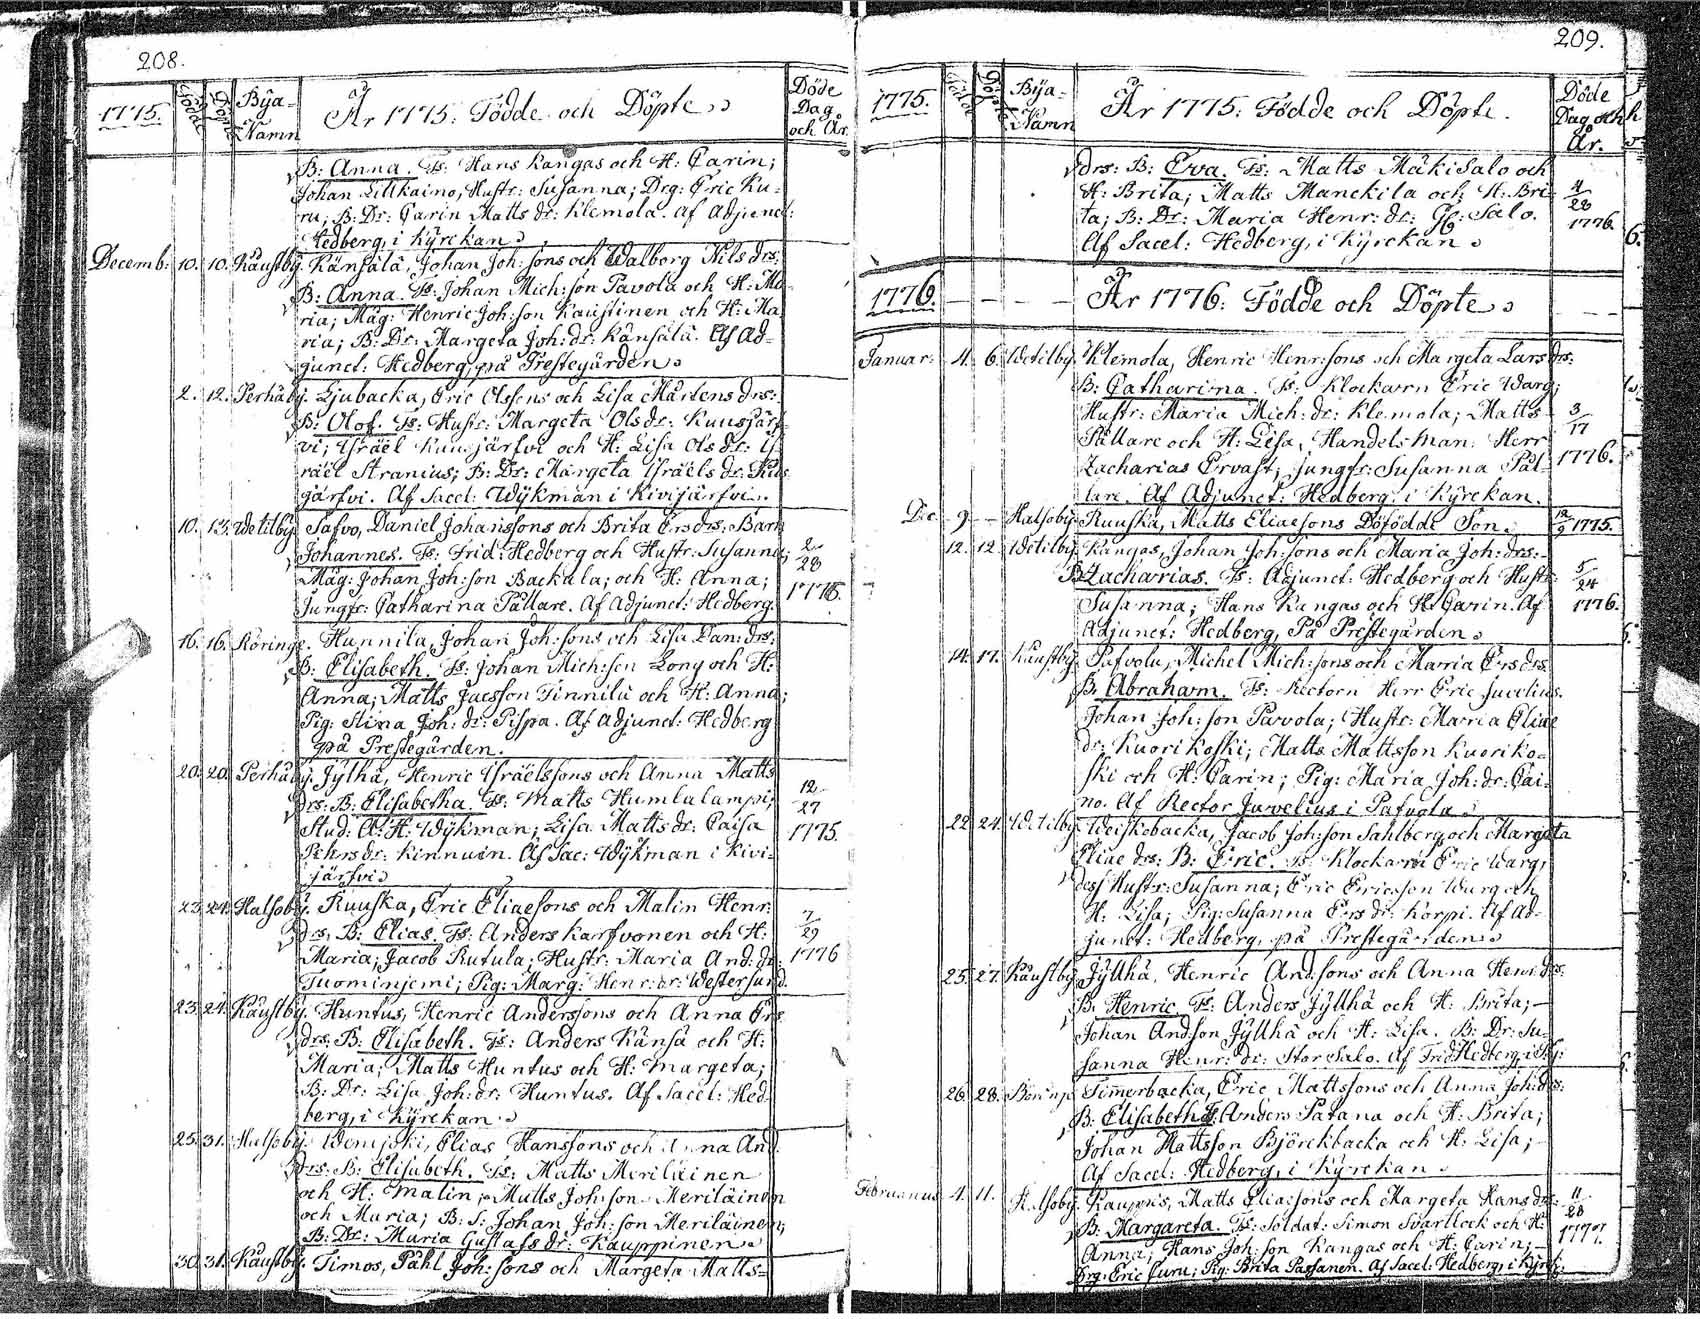 208.
1775.
Födde
Döpte
Bÿa-
Namn
År 1775: Födde och Döpte
Döde
Dag
och År.
B: Anna. Fs: Hans Kangas och H: Carin;
Johan Lillkaino, Hustr: Susanna; Drg: Eric Ku-
ru; B: Dr: Carin Matts dr: Klemola. Af Adjunct:
Hedberg, i Kÿrckan.
Decemb: 10. 10. Kaustbÿ. Känsälä, Johan Joh: sons och Walborg Nils drs:
B: Anna. Fs: Johan Mich: son Pavola och H: Ma-
ria; Mäg: Henric Joh: son Kaustinen och H: Ma-
ria; B: Dr: Margeta Joh: dr: Känsälä. Af Ad-
junct: Hedberg, på Prestegården.
2. 12. Perhåbÿ. Ljubacka, Eric Olssons och Lisa Mårtens drs:
B: Olof. Fs: Hustr: Margeta Ols dr: Kuusjärf-
vi; Israël Kuusjärfvi och H: Lisa Ols dr: Is-
raël Stranius; B: Dr: Margeta Israëls dr: Kus
järfvi. Af Sacel: Wÿkman i Kivijärfvi.
10. 13. Wetilbÿ. Salvo, Daniel Johanssons och Brita Ers drs: Barn
Johannes. Fs: Frid: Hedberg och Hustr: Susanna;
Mäg: Johan Joh: son Backala; och H: Anna;
Jungfr: Catharina Pållare. Af Adjunct: Hedberg.
2/28
1776.
16. 16. Köringe. Hannila, Johan Joh: sons och Lisa Dan: drs:
B: Elisabeth. Fs: Johan Mich: son Long och H:
Anna; Matts Jacsson Finnilä och H: Anna;
Pig: Stina Joh: dr: Pispa. Af Adjunct: Hedberg
på Prestegården.
20. 20. Perhåbÿ. Jÿlhä, Henric Israëlssons och Anna Matts
drs: B: Elisabetha. Fs: Matts Humlalampi;
Stud: A: H: Wÿkman; Lisa Matts dr: Caisa
Pehrs dr: Kinnuin. Af Sac: Wÿkman i Kivi-
järfvi
12/27
1775.
23. 24. Halsobÿ. Ruuska, Eric Eliaesons och Malin Henr:
drs, B: Elias. Fs: Anders Karfvonen och H:
Maria; Jacob Rutula; Hustr: Maria And: dr:
Tuominjemi; Pig: Marg: Henr: dr: Westersund.
7/29
1776
23. 24. Kaustbÿ. Huntus, Henric Anderssons och Anna Ers
drs, B: Elisabeth. Fs: Anders Känsä och H:
Maria; Matts Huntus och H: Margeta;
B: Dr: Lisa Joh: dr: Huntus. Af Sacel: Hed-
berg, i Kÿrckan.
25. 31. Halsobÿ. Elias Hanssons och Anna And:
drs: B: Elisabeth. Fs: Matts Meriläinen
och H: Malin; Matts Joh: son Meriläinen
och Maria; B: S: Johan Joh: son Meriläinen;
B: Dr: Maria Gustafs dr: Kauppinen.
30. 31. Kaustbÿ. Timos, Påhl Joh: sons och Margeta Matts-
209.
1775.
Födde
Döpte
Bÿa-
Namn
År 1775: Födde och Döpte.
Döde
Dag och
År.
drs: B: Eva. Fs: Matts Mäkisalo och
H: Brita; Matts Manckila och H: Bri-
ta; B: Dr: Maria Henr: dr: Salo.
Af Sacel: Hedberg, i Kÿrckan.
4/28
1776.
1776. År 1776: Födde och Döpte
Januar: 4. 6. Wetilbÿ. Klemola, Henric Henr: sons och Margeta Lars drs:
B: Catharina. Fs: Klockarn Eric Warg;
Hustr: Maria Mich: dr: Klemola; Matts
Pållare och H: Lisa, Handelsman: Herr
Zacharias Ervast; Jungfr: Susanna Pål-
lare. Af Adjunct: Hedberg, i Kÿrckan.
3/17
1776.
Dec 9. Halsobÿ. Ruuska, Matts Eliaesons Döfödde Son.
12/9 1775.
12. 12. Wetilbÿ. Kangas, Johan Joh: sons och Maria Joh: drs:
B: Zacharias. Fs: Adjunct: Hedberg och Hustr:
Susanna; Hans Kangas och H: Carin. Af
Adjunct: Hedberg, På Prestegården.
5/24
1776.
14. 17. Kaustbÿ. Pafvola, Michel Mich: sons och Maria Ers drs:
B: Abraham. Fs: Rectorn Herr Eric Juvelius.
Johan Joh: son Pavola; Hustr: Maria Eliae
dr: Kuorikoski; Matts Mattsson Kuoriko-
ski och H: Carin; Pig: Maria Joh: dr: Cai-
no. Af Rector Juvelius i Pafvola.
22. 24. Wetilbÿ. Weiskebacka, Jacob Joh: son Sahlberg och Margeta
Eliae drs: B: Eric. Fs: Klockarn Eric Warg,
dess Hustr: Susanna; Eric Ericsson Warg och
H: Lisa; Pig: Susanna Ers dr: Korpi. Af Ad-
junct: Hedberg, på Prestegården.
25. 27. Kaustbÿ. Jÿllhä, Henric And: sons och Anna Henr: drs:
B: Henric. Fs: Anders Jÿllhä och H: Brita;
Johan And: son Jÿllhä och H: Lisa. B: Dr: Su-
sanna Henr: dr: Stor Salo. Af Frid: Hedberg, i Kÿ:
26. 28. Timerbacka, Eric Mattssons och Anna Joh: drs:
B: Elisabeth. Fs: Anders Patana och H: Brita;
Johan Mattsson Björckbacka och H: Lisa;
Af Sacel: Hedberg, i Kÿrckan.
Februarius 4. 11. Halsobÿ. Kauppis, Matts Elia: sons och Margeta Hans drs:
B: Margareta. Fs: Soldat: Simon Svartlock och H:
Anna; Hans Joh: son Kangas och H: Carin;
Drg: Eric Furu; Pig: Brita Passanen. Af Sacel: Hedberg, i Kÿrk:
11/28
1777.